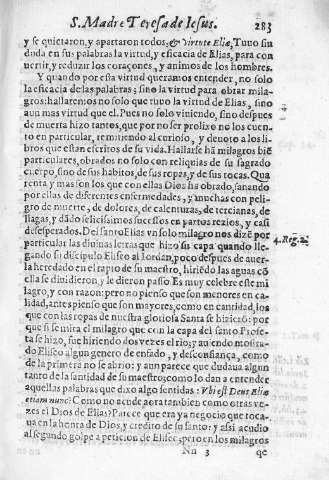 S. Madre Teresa de Iesus. 283
y se quietaron, y apartaron todos, & Virtute Eliæ, Tuuo sin
duda en sus palabras la virtud, y eficacia de Elias, para con
uertir, y reduzir los coraçones, y animos de los hombres.
Y quando por esta virtud queramos entender, no solo
la eficacia de las palabras; sino la virtud para obrar mila-
gros: hallaremos no solo que tuuo la virtud de Elias, sino
aun mas virtud que el. Pues no solo viuiendo, sino despues
de muerta hizo tantos, que por no ser prolixo no los cuen-
to en particular, remitiendo al curioso, y deuoto a los li-
bros que estan escritos de su vida. Hallarse hā milagros biē
particulares, obrados no solo con reliquias de su sagrado
cuerpo, sino de sus habitos, de sus ropas, y de sus tocas. Qua
renta y mas son los que con ellas Dios ha obrado, sanando
por ellas de diferentes enfermedades, y muchas con peli-
gro de muerte, de dolores, de calenturas, de tercianas, de
llagas, y dādo felicissimos sucessos en partos rezios, y casi
desesperados. Del santo Elias vn solo milagro nos dizē por
particular las diuinas letras que hizo su capa quando lle-
gando su discipulo Eliseo al Iordan, poco despues de auer-
la heredado en el rapto de su maestro, hiriēdo las aguas cō
ella se diuidieron, y le dieron passo Es muy celebre este mi
lagro, y con razon: pero no pienso que son menores en ca-
lidad, antes pienso que son mayores, como en cantidad, los
que con las ropas de nuestra gloriosa Santa se hizierō: por
que si se mira el milagro que con la capa del santo Profe-
ta se hizo, fue hiriendo dos vezes el rio; y auiendo mostra-
do Eliseo algun genero de enfado, y desconfiança, como
de la primera no se abrio; y aun parece que dudaua algun
tanto de la santidad de su maestro; como lo dan a entender
aquellas palabras que dixo algo sentidas: Vbi est Deus Eliæ
etiam nunc? Como no acude aora tambien como otras ve-
zes el Dios de Elias? Parece que era ya negocio que toca-
ua en la honra de Dios, y credito de su santo: y assi acudio
al segundo golpe a peticion de Eliseo: pero en los milagros
Nn 3 qe
4. Reg. 2.